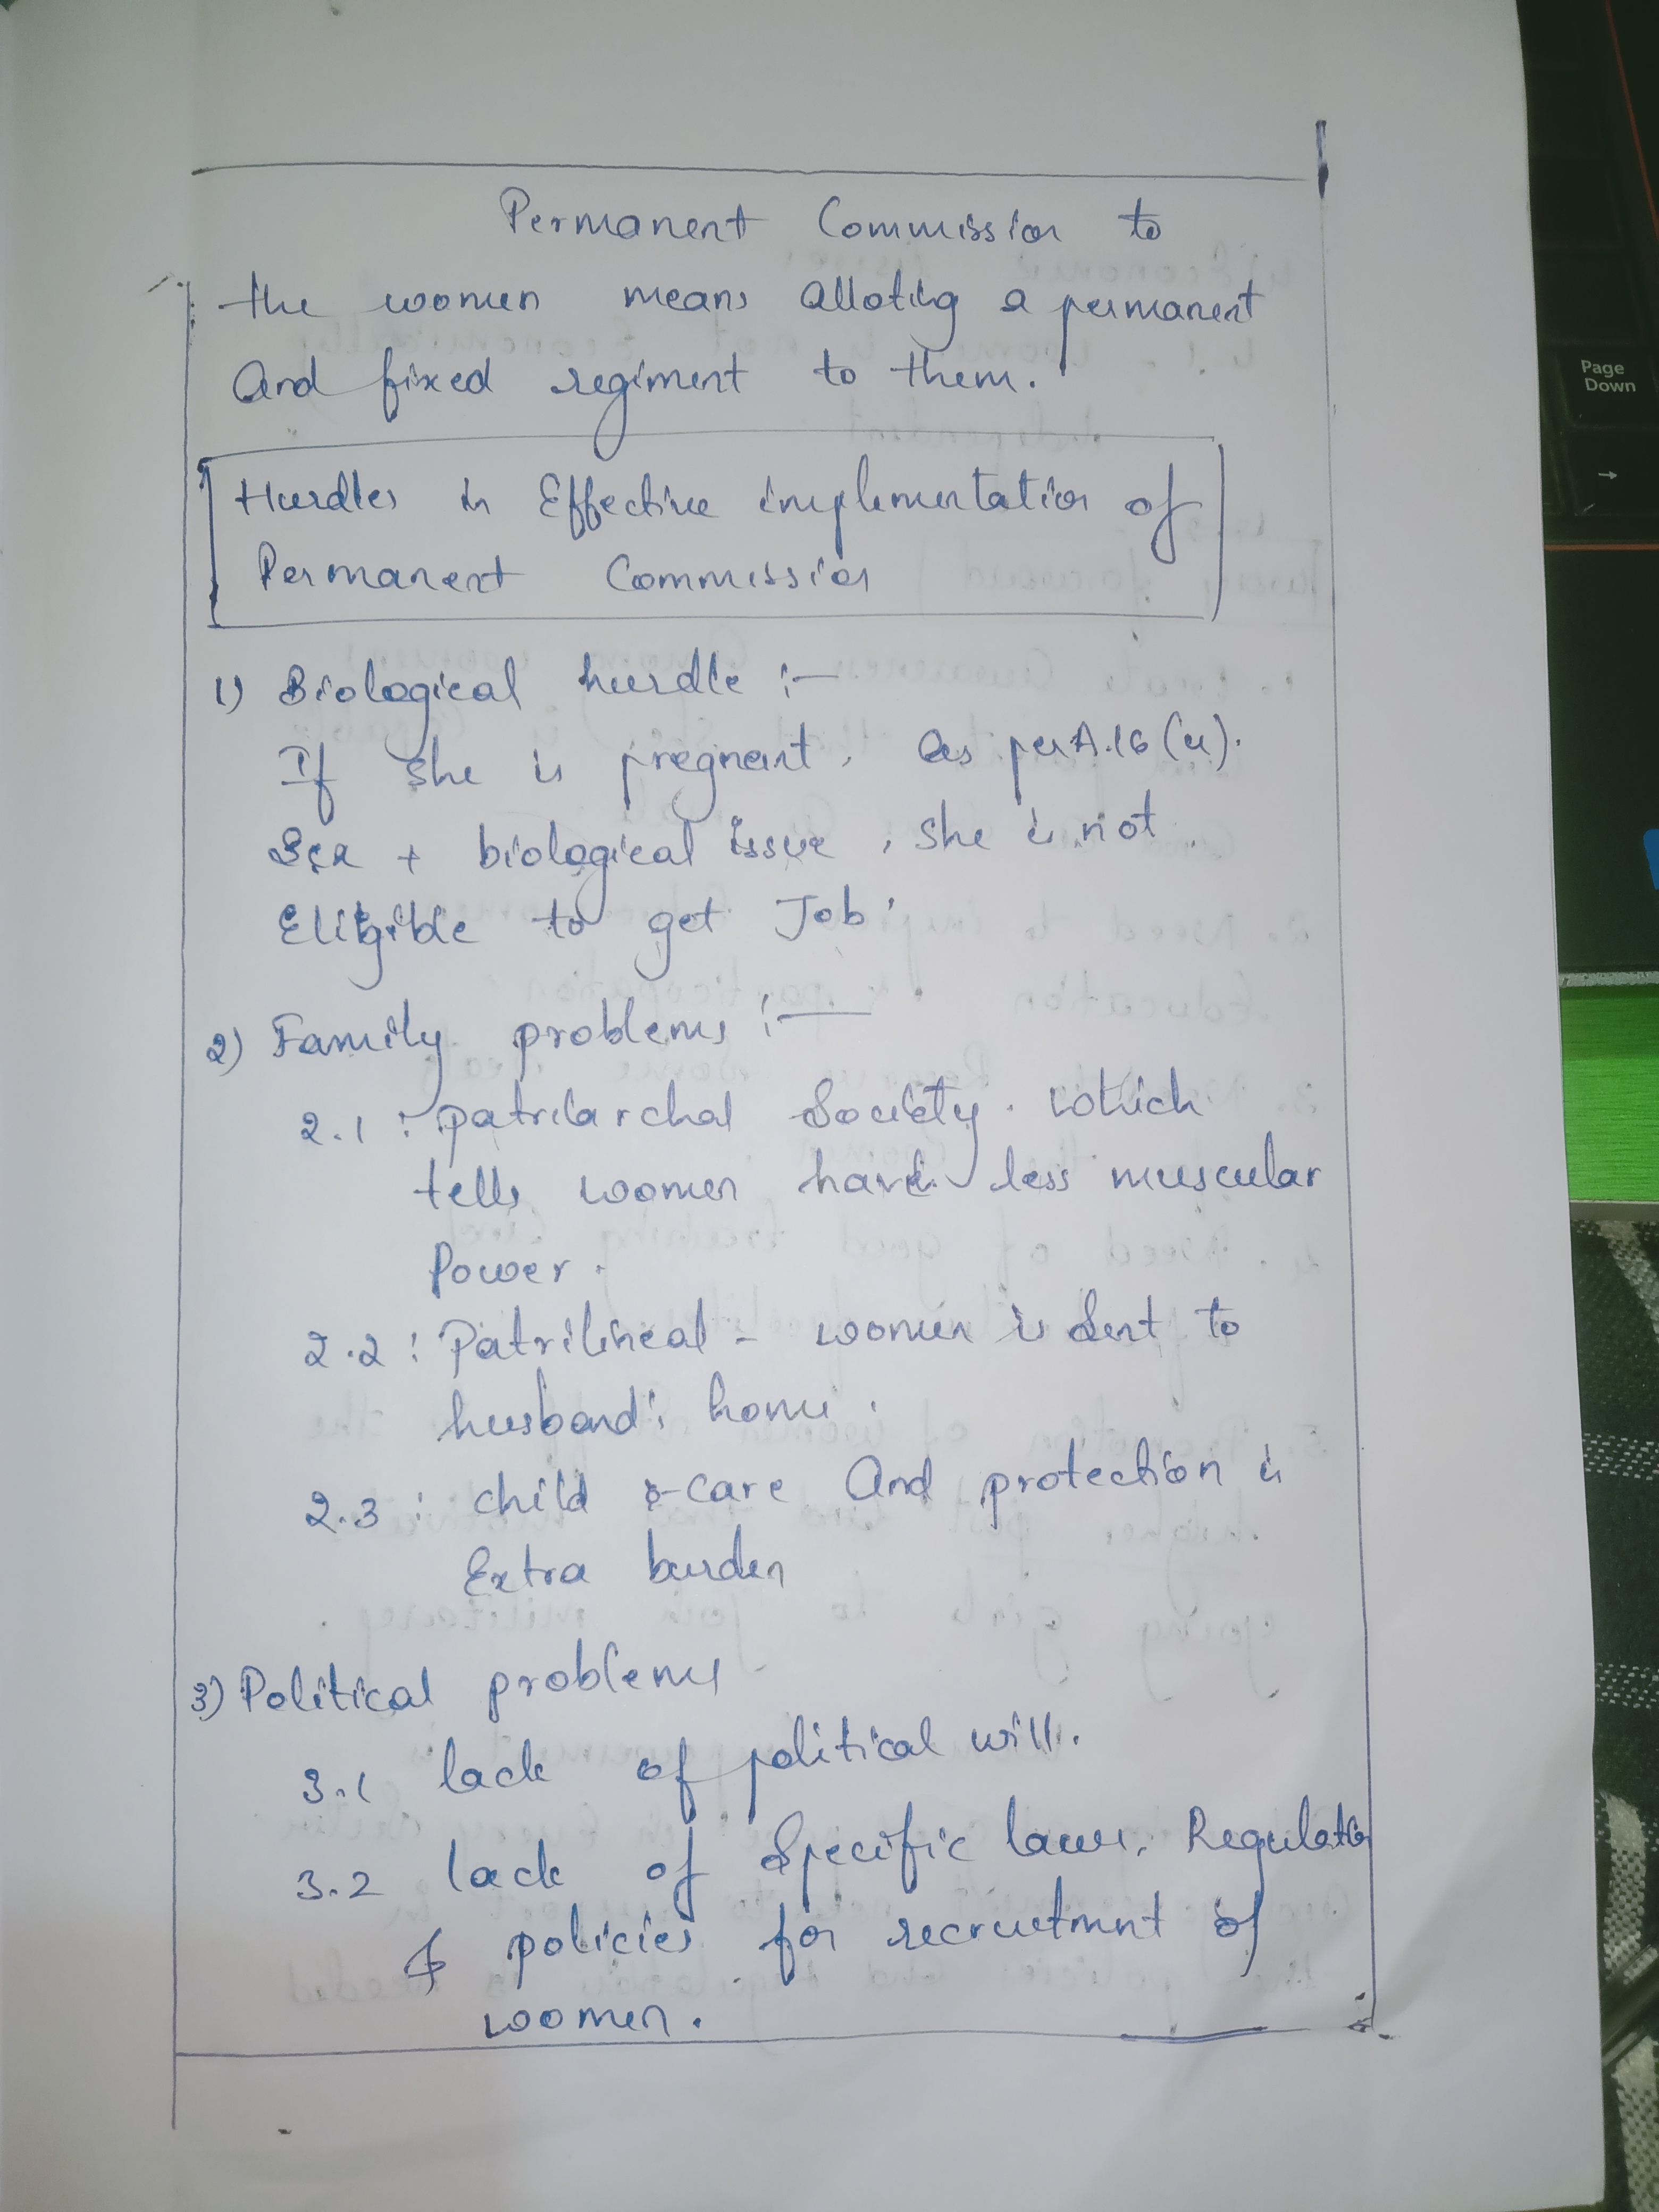 Permanent Commission to
the women means alloting a permanent
and fixed regiment to them.
Hurdles in Effective implementation of
Permanent Commission
1) Biological hurdle :-
If she is pregnant, as per A.16(4).
Sex + biological issue, she is not
Eligible to get Job.
2) Family problems :-
2.1 : patriarchal Society. which
tells women have less muscular
Power.
2.2 : Patrilineal - women is sent to
husband's home.
2.3 : child care And protection is
Extra burden
3) Political problems
3.1 lack of political will.
3.2 lack of Specific laws, Regulation
& policies for recruitment of
women.
Page
Down
→